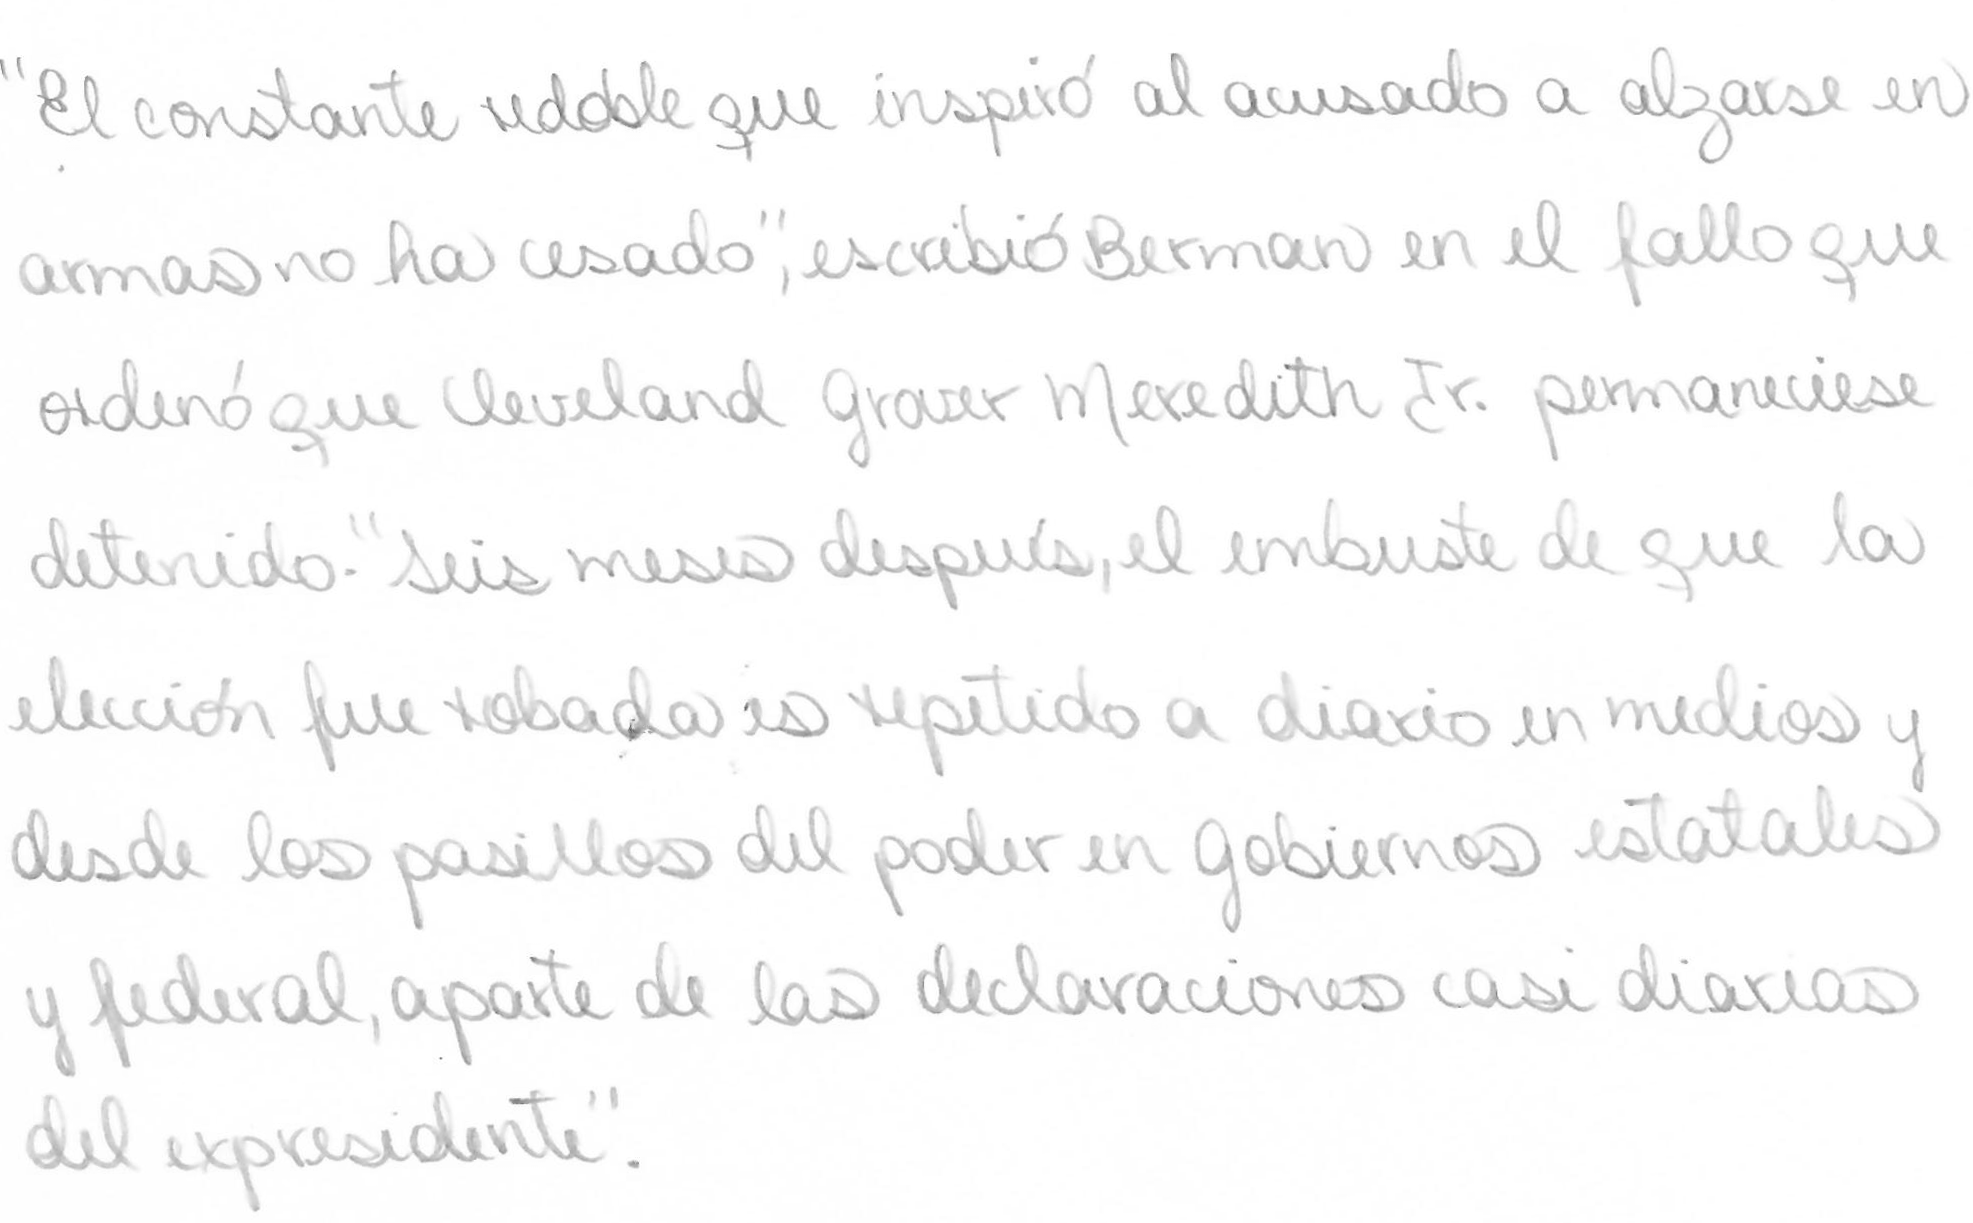 "El constante redoble que inspiró al acusado a alzarse en
armas no ha cesado", escribió Berman en el fallo que
ordenó que Cleveland Grover Meredith Jr. permaneciese
detenido. "Seis meses después, el embuste de que la
elección fue robada es repetido a diario en medios y
desde los pasillos del poder en gobiernos estatales
y federal, aparte de las declaraciones casi diarias
del expresidente".